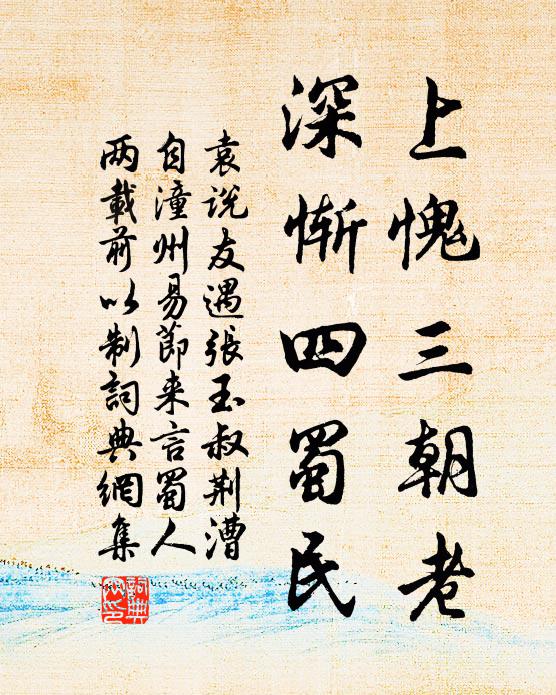 上愧三朝老
深惭四蜀民
袁说友遇張玉叔荆漕
自潼州易節来言蜀人
两載前以制詞典網集
詞典網印